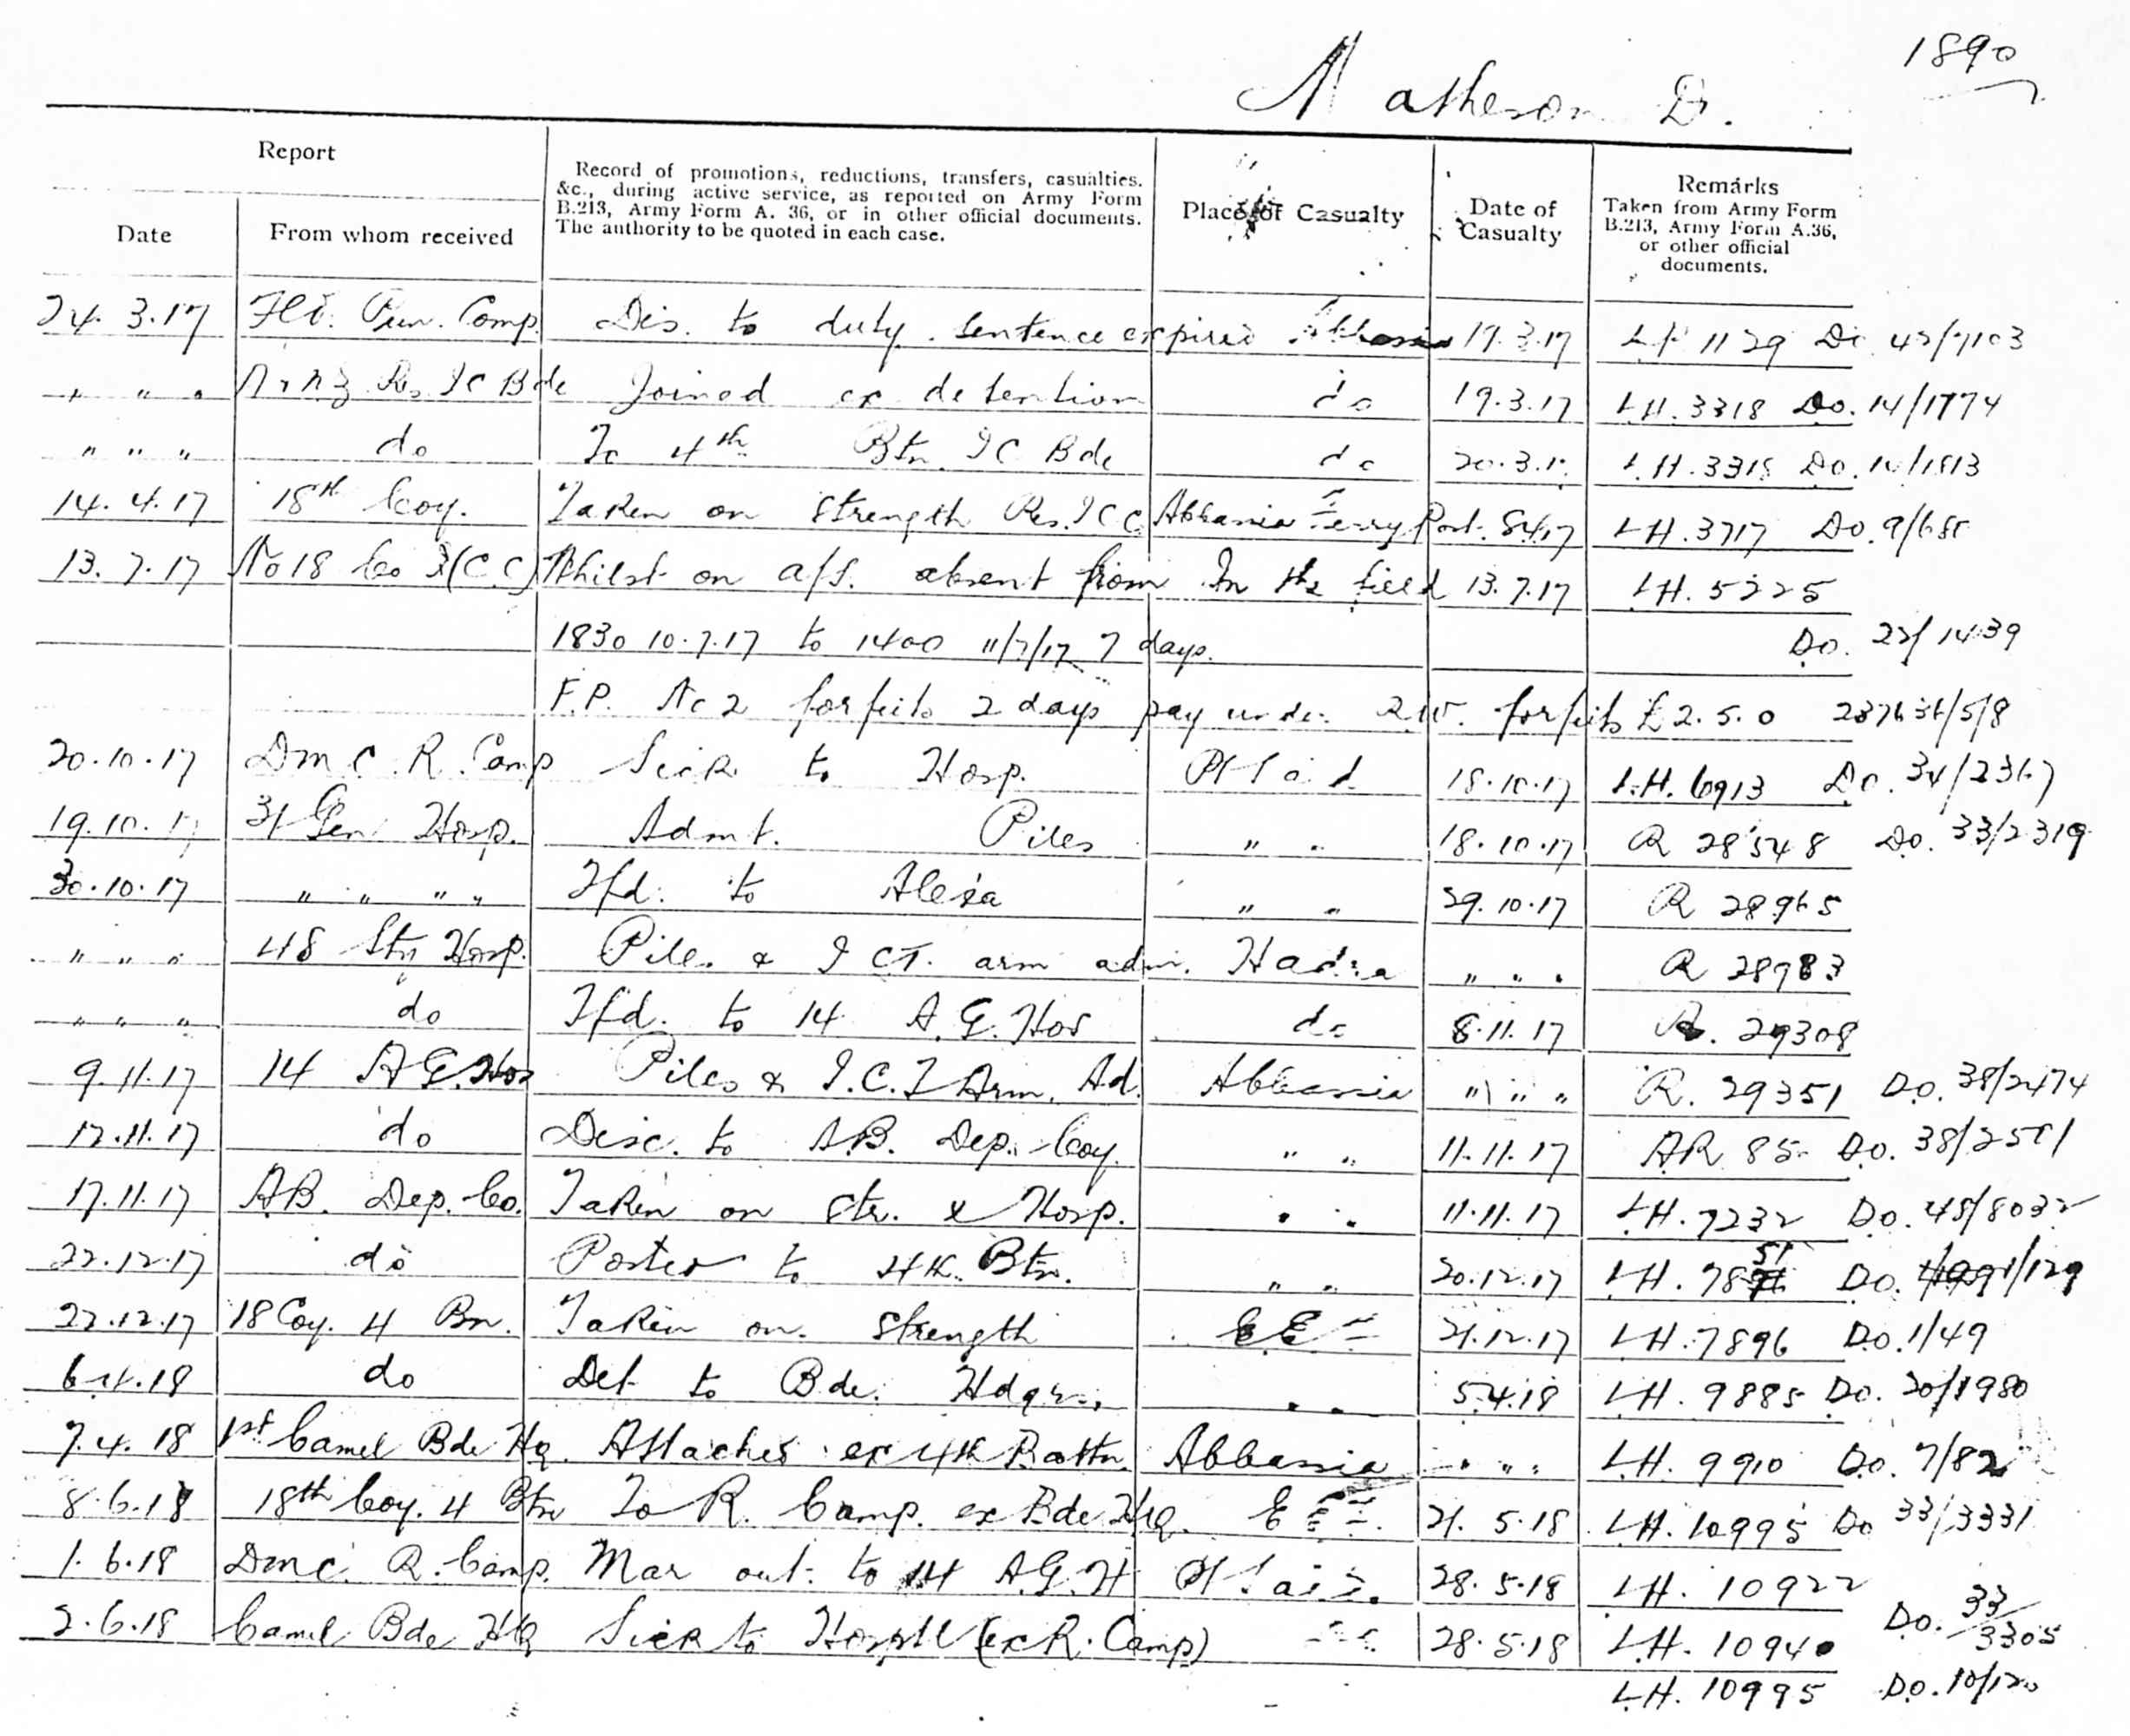 1890
Matheson D.
Report
Date
From whom received
Record of promotions, reductions, transfers, casualties.
&c., during active service, as reported on Army Form
B.213, Army Form A. 36, or in other official documents.
The authority to be quoted in each case.
Place of Casualty
Date of
Casualty
Remarks
Taken from Army Form
B.213, Army Form A.36,
or other official
documents.
24.3.17 Pun. Comp. Dis. to duty. sentence expired Abbassia 19.3.17 1129 Do.
" " " Res I C Bde Joined ex detention do 19.3.17 L.H. 3318 Do. 14/1774
" " " do To 4th Btn. I C Bde do 20.3.17 L.H. 3318 Do.
14.4.17 18th Coy. Taken on strength Res. I C C. Abbasia Ferry Post. 8.4.17 L.H. 3717 Do.
13.7.17 No 18 Co I(C.C) Whilst on a/s. absent from In the field 13.7.17 L.H. 5225
1830 10.7.17 to 1400 11/7/17 7 days. Do. 22/1439
F.P. No 2 forfeits 2 days pay under R.W. forfeits £2.5.0
20.10.17 D.M.C. R. Camp Sick to Hosp. Pt Said 18.10.17 L.H. 6913 Do. 34/2367
19.10.17 31 Gen Hosp. Admt. Piles " " 18.10.17 R 28548 Do. 33/2319
30.10.17 " " " " Tfd. to Alexa " " 29.10.17 R 28965
" " " 48 Stn Hosp. Piles & I C T. arm adm. Hadra " " " R 28983
" " " do Tfd. to 14 A.G. Hos do 8.11.17 R. 29308
9.11.17 14 A G. Hos Piles & I.C.T Arm. Ad. Abbassia " " " R. 29351 Do. 38/2474
12.11.17 do Disc. to A.B. Dep. Coy. " " 11.11.17 AR 85 Do.
17.11.17 A.B. Dep. Co. Taken on str. x Hosp. " " 11.11.17 L.H. 7232 Do. 45/8032
22.12.17 do Posted to 4th. Btn. " " 20.12.17 L.H. 7851 Do. 1/129
22.12.17 18 Coy. 4 Bn. Taken on strength E E F 21.12.17 L.H. 7896 Do. 1/49
6.4.18 do Det to Bde. Hdqrs. " " 5.4.18 L.H. 9885 Do. 20/1980
7.4.18 1st Camel Bde Hq. Attached ex 4th Battn. Abbassia " " " L.H. 9910 Do. 7/82
8.6.18 18th Coy. 4 Btn To R. Camp. ex Bde Hq. E E F. 21.5.18 L.H. 10995 Do 33/3331
1.6.18 D.M.C. R. Camp. Mar out. to 14 A.G.H Pt Said. 28.5.18 L.H. 10922
2.6.18 Camel Bde HQ Sick to Hospll (ex R. Camp) do 28.5.18 L.H. 10940 Do. 33/3305
L.H. 10995 Do. 10/120